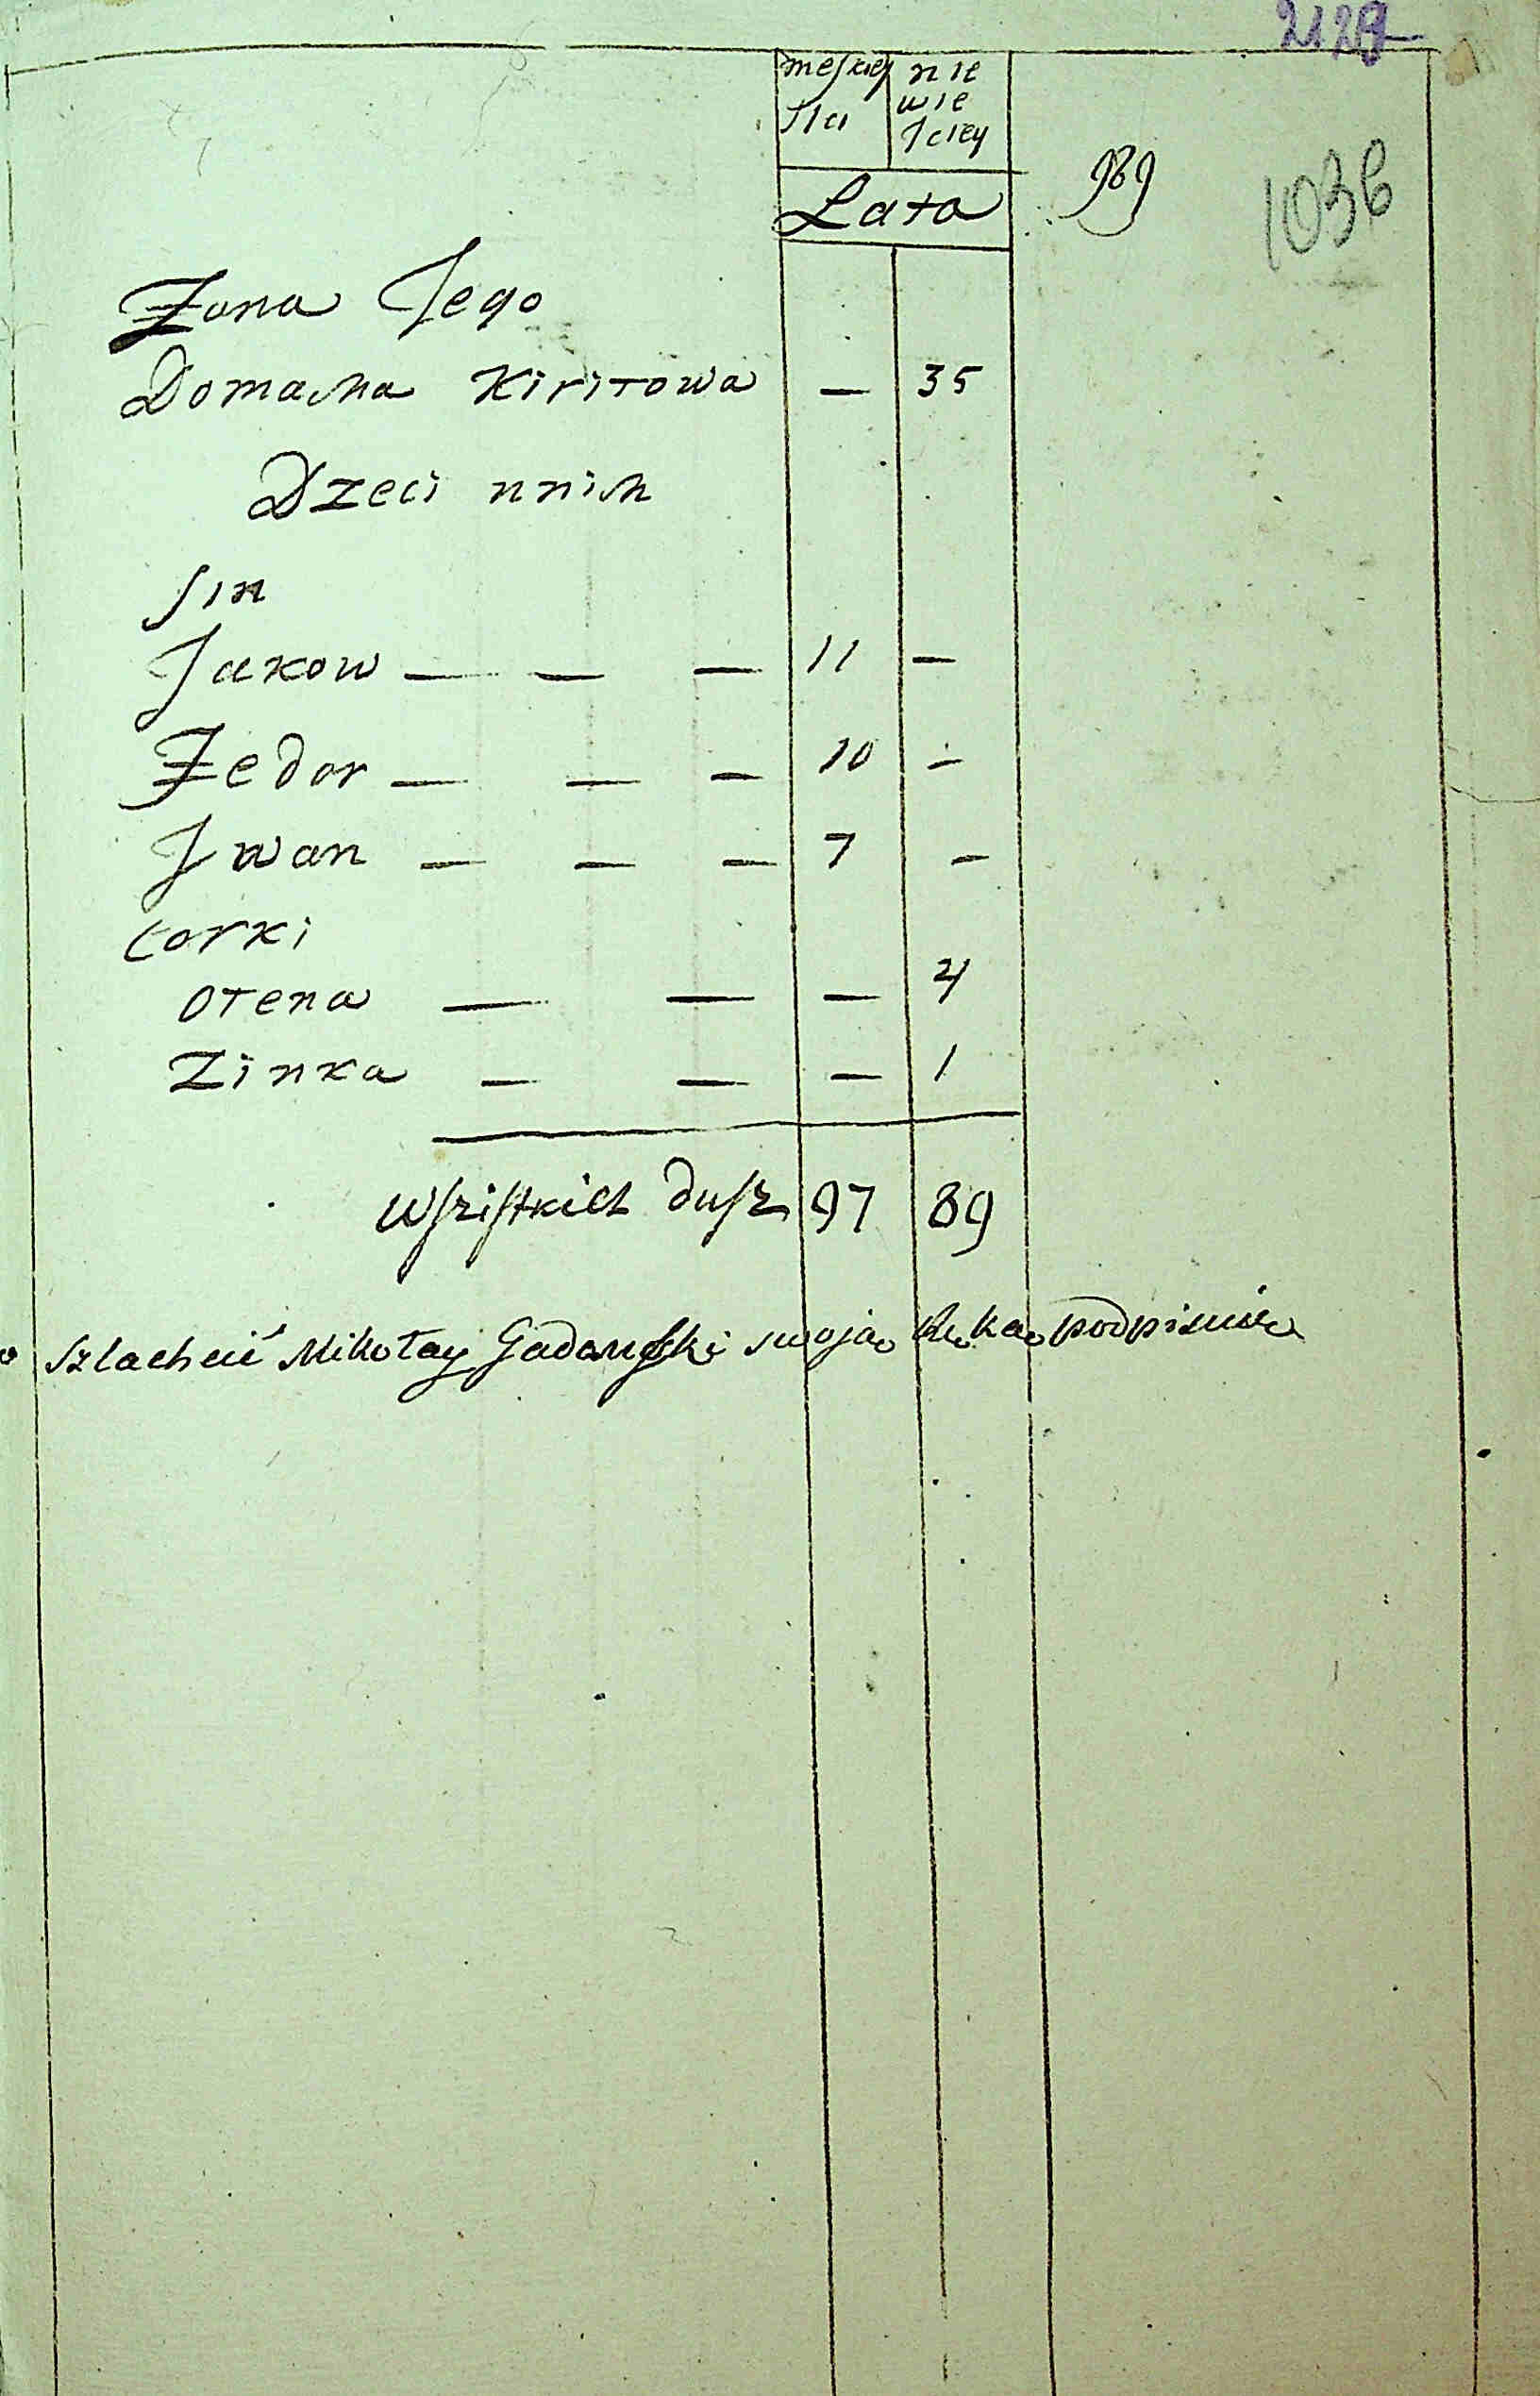 2129
meſkiey nie
płci wie
ſciey
Lata
989
1036
Żona Jego
Domacha Kiriłowa — 35
Dzeci nnich
ſin
Jakow — — — 11 —
Fedor — — — 10 —
Jwan — — — 7 —
Corki
Ołena — — — 4
Zinka — — — 1
Wſziſtkich duſz 97 89
Szlachcić Mikołay Gadomſki swoją Ręką podpisuię